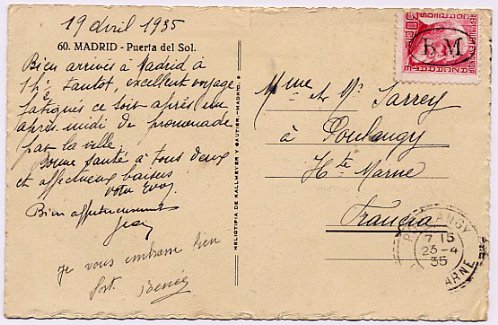 19 avril 1935
60. MADRID - Puerta del Sol.
Bien arrivés à Madrid à
1h. tantot, excellent voyage
fatigués ce soir après une
après-midi de promenade
par la ville.
Bonne santé à tous deux
et affectueux baisers
votre
Bien affectueusement
Jean
je vous embrasse bien
fort.
HELIOTIPIA DE KALLMEYER Y GAUTIER.-MADRID.
Mme et Mr Sarrey
à Poulangy
Hte Marne
Francia
B M
POULANGY
7 15
23-4
35
MARNE